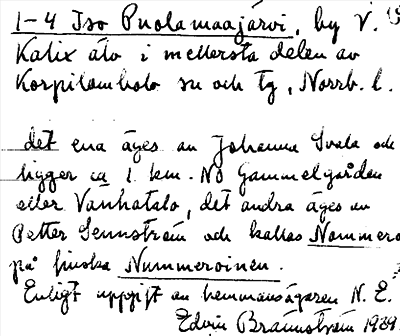 1-4 Iso Puolamaajärvi, by V.
Kalix älv i mellersta delen av
Korpilombolo sn och tg, Norrb. l.
det ena äges av Johanna Svala och
ligger ca 1 km. NO Gammelgården
eller Vanhatalo, det andra äges av
Petter Sennström och kallas Nummero
på finska Nummeroinen.
Enligt uppgift av hemmansägaren N. E.
Edvin Brännström 1939